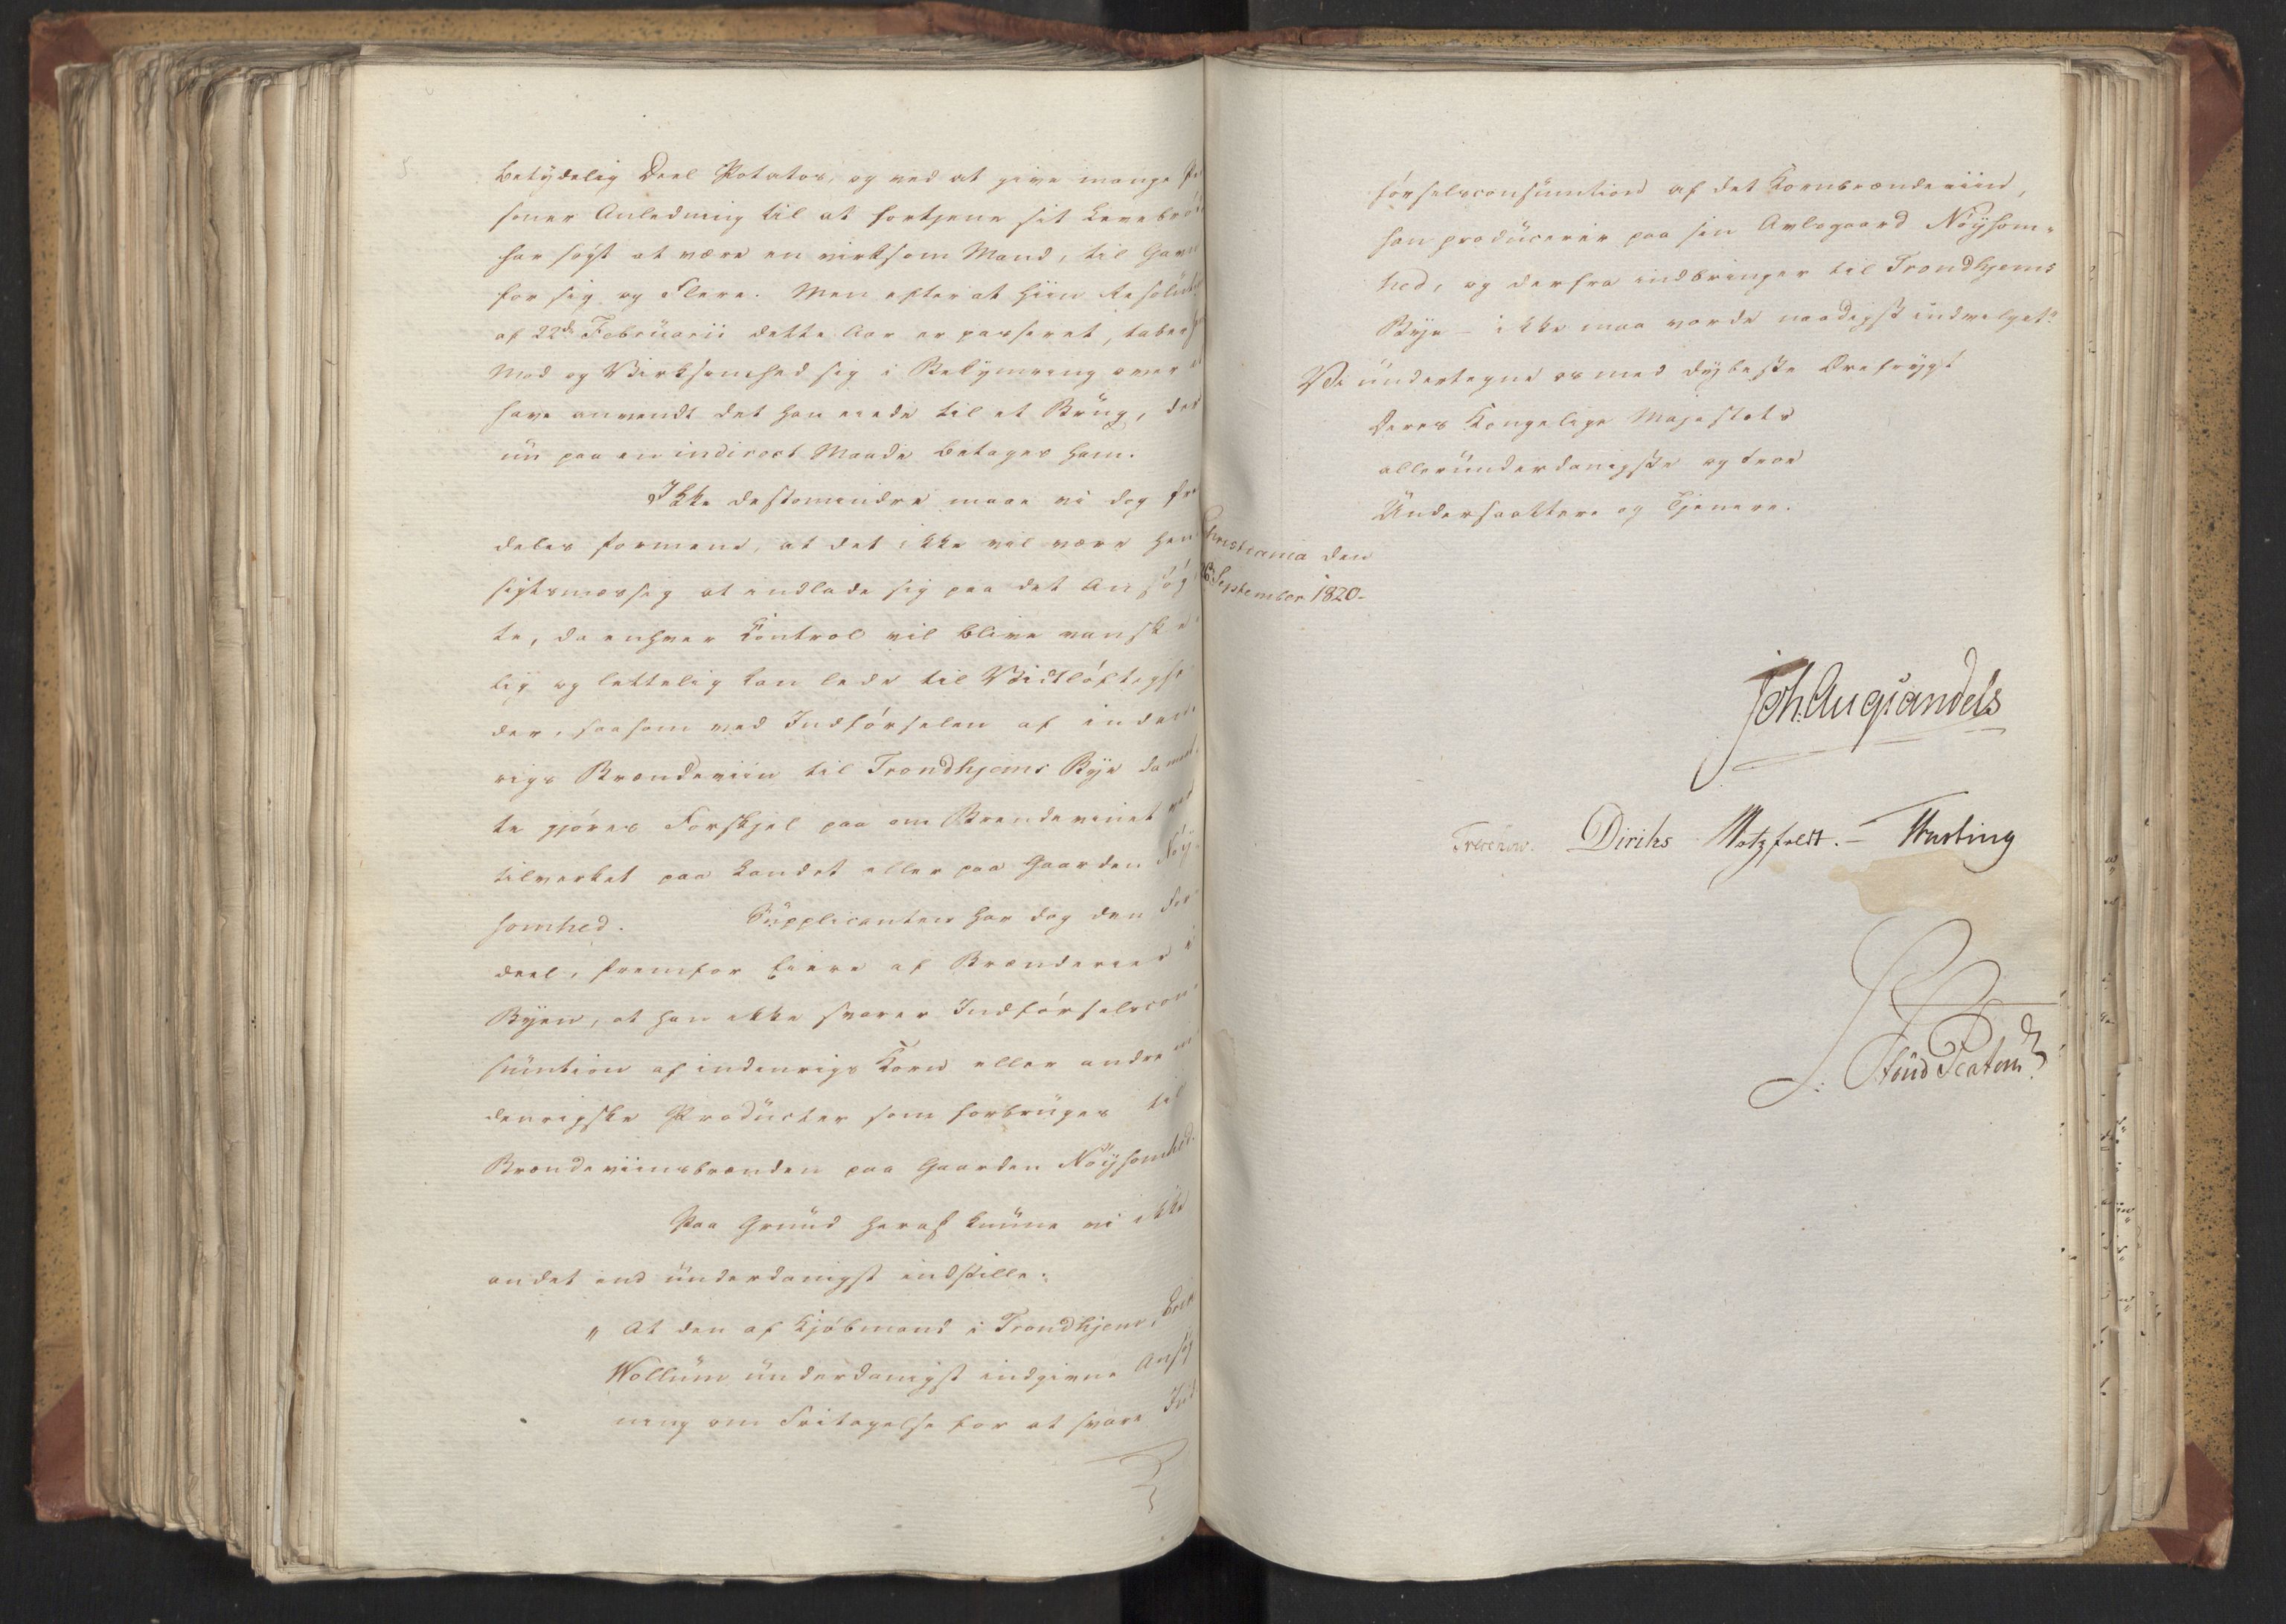 betÿdelig Deel Potatos, og ved at give mange Per
soner Anledning til at fortjene sit Levebrød
har søgt at være en virksom Mand, til Gavn
for sig og Flere. Men efter at hiin Resolution
af 22de Februarii dette Aar er passeret, taber hans
Mod og Virksomhed sig i Bekÿmring over at
have anvendt det han eiede til et Brug, der
nu paa en indirect Maade betages ham.
Ikke destomindre maae vi dog frem
deles formene, at det ikke vil være hen
sigtsmæssig at indlade sig paa det Ansøg
te, da enhver Kontrol vil blive vanske
lig og lettelig kan lede til Vidtløftighe
der, saasom ved Indførselen af inden
rigs Brændeviin til Trondhjems Bÿe da maat
te gjøres Forskjel paa om Brændevinet var
tilverket paa Landet eller paa Gaarden Nöÿ
somhed. Supplicanten har dog den For
deel, fremfor Eiere af Brænderier i
Bÿen, at han ikke svarer Indførselscon
sumtion af indenrigs Korn eller andre in
denrigske Producter som forbruges til
Brændeviinsbrænden paa Gaarden Nöÿsomhed.
Paa Grund heraf kunne vi ikke
andet end underdanigst indstille:
" At den af Kjøbmand i Trondhjem, Erik
Wollum underdanigst indgivne Ansøg
ning om Fritagelse for at svare Ind
førselsconsumtion af det Kornbrændeviin,
han producerer paa sin Avlsgaard Nöÿsom-
hed, og derfra indbringer til Trondhjems
Bÿe - ikke maa vorde naadigst indvilget."
Vi undertegne os med dÿbeste Ærefrÿgt
Deres Kongelige Majestæts
allerunderdanigste og troe
Undersaattere og Tjenere.
Christiania den
26 September 1820.
Joh. Aug. Sandels
Treschow. Diriks Motzfeldt. - Fasting